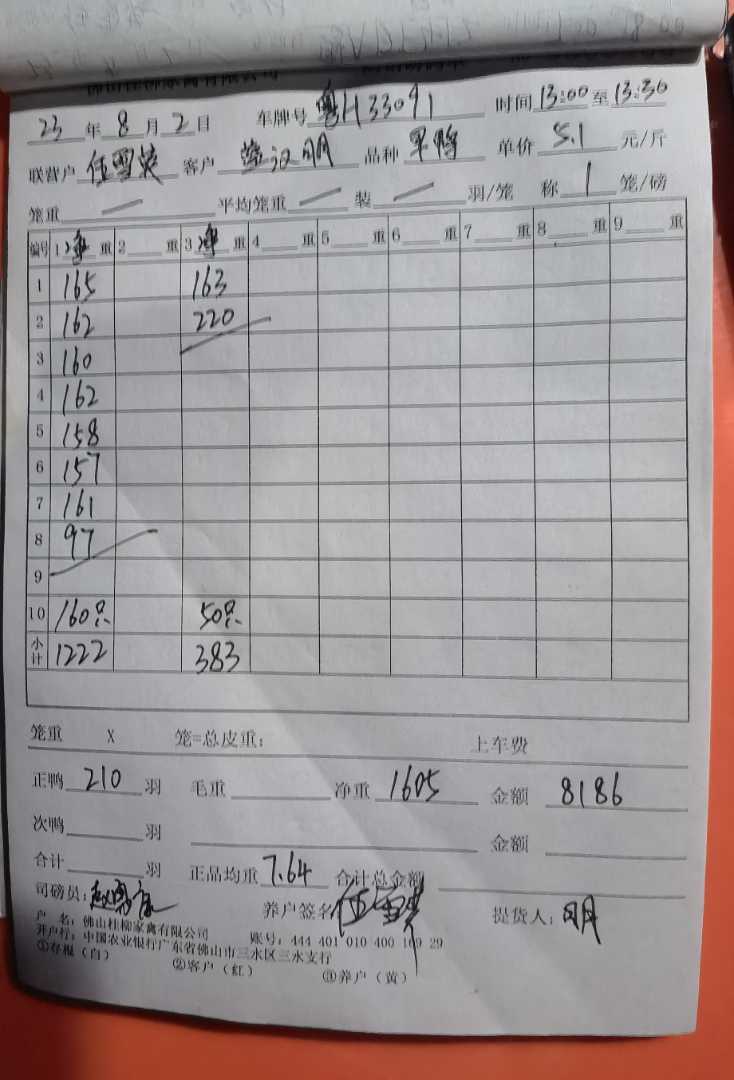 23 年 8 月 2 日 车牌号 粤H33091 时间 13:00 至 13:30
联营户 伍雪 客户 汉明 品种 单价 5.1 元/斤
笼重 — 平均笼重 — 装 — 羽/笼 称 1 笼/磅
编号 1 净 重 2 重 3 净 重 4 重 5 重 6 重 7 重 8 重 9 重
1 165 163
2 162 220
3 160
4 162
5 158
6 157
7 161
8 97
9
10 160只 50只
小计 1222 383
笼重 X 笼=总皮重: 上车费
正鸭 210 羽 毛重 净重 1605 金额 8186
次鸭 羽 金额
合计 羽 正品均重 7.64 合计总金额
司磅员: 养户签名 伍雪 提货人: 明
户 名: 佛山桂柳家禽有限公司
开户行: 中国农业银行广东省佛山市三水区三水支行 账号: 444 401 010 400 169 29
①存根(白) ②客户(红) ③养户(黄)